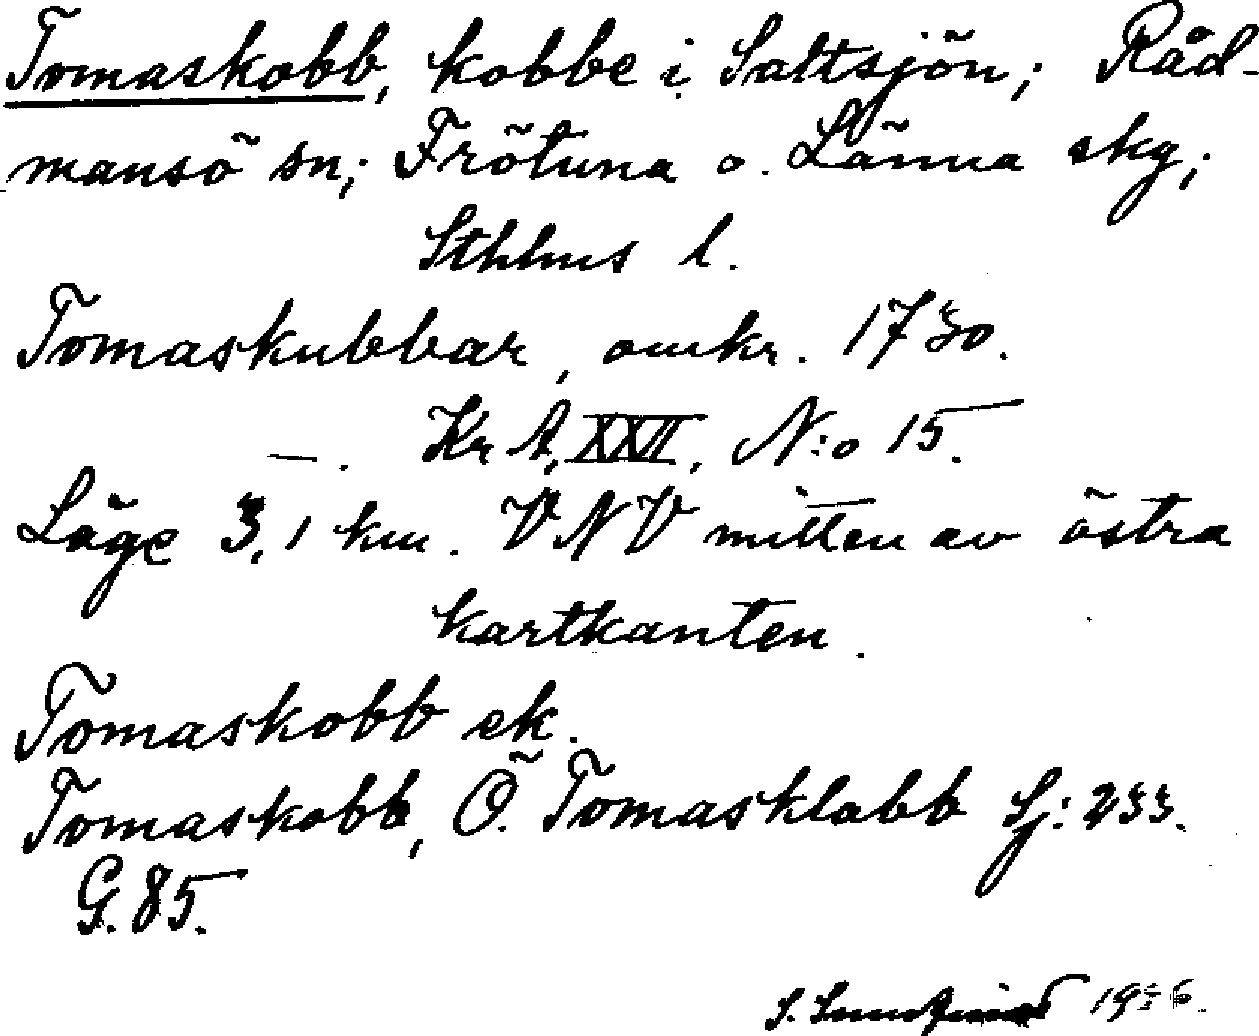 Tomaskobb, kobbe i Saltsjön; Råd-
mansö sn; Frötuna o. Länna skg;
Sthlms l.
Tomaskubbar, omkr. 1730.
—. Kr A, XXVI, N:o 15.
Läge 3,1 km. VNV mitten av östra
kartkanten.
Tomaskobb ek.
Tomaskobb, Ö. Tomasklabb Sj: 233.
G. 85.
S. 19